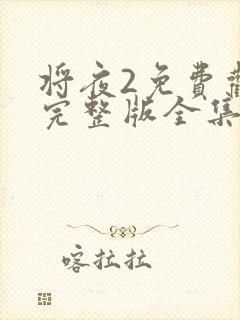 将夜2免費
完整版全集
喀拉拉